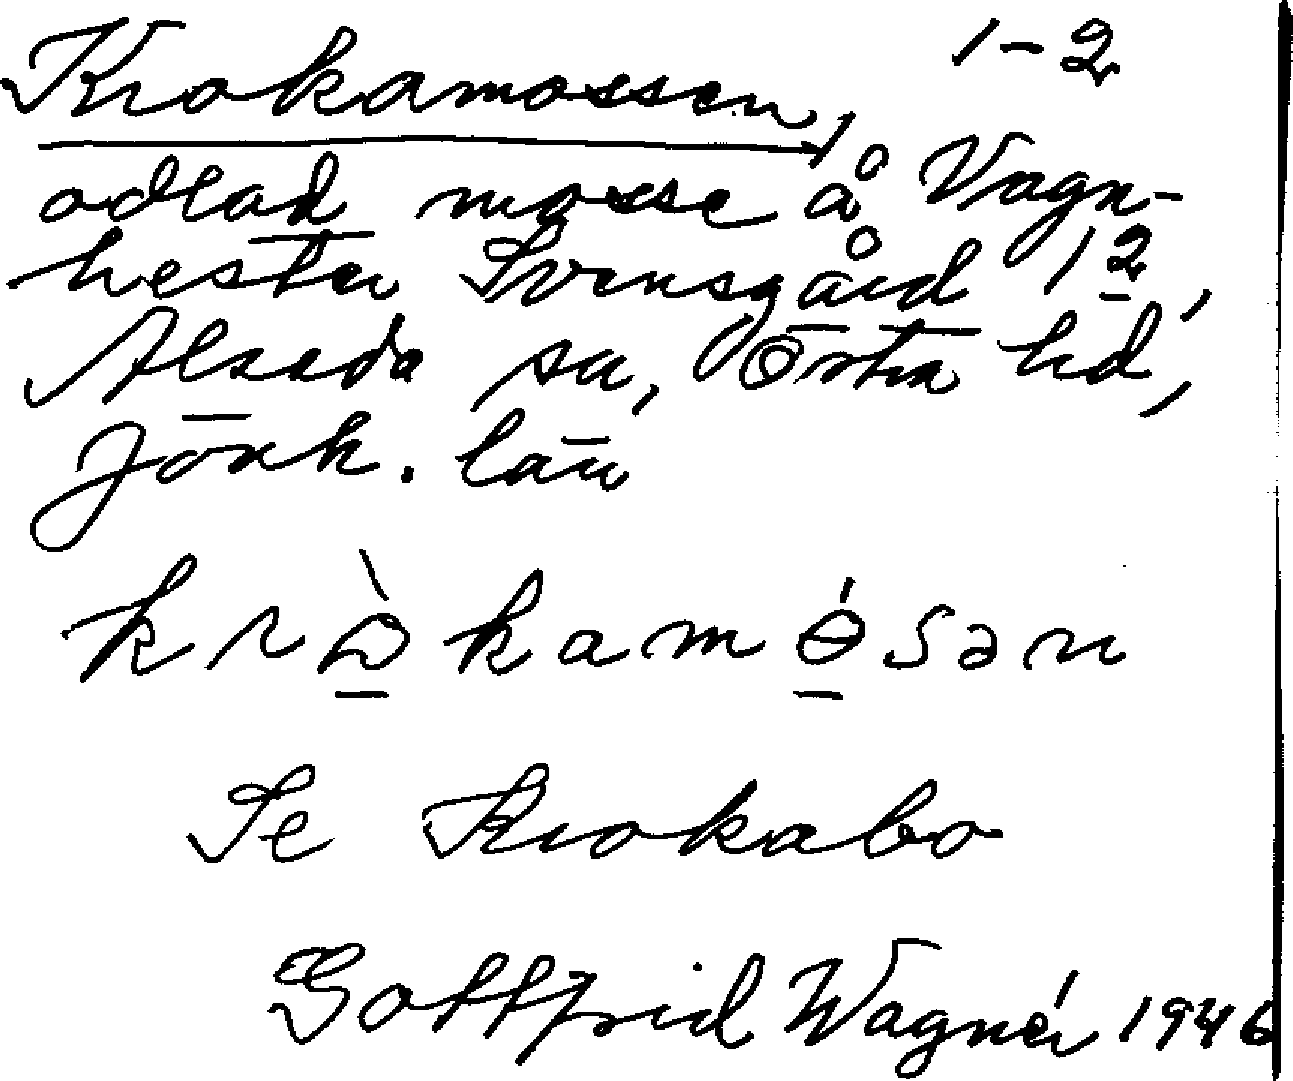 Krokamossen, 1-2
odlad mosse å Vagn-
hester Svensgård 12,
Alseda sn, Östra hd,
Jönk. län
Se Krokabo
Gottfrid Wagnér 1946